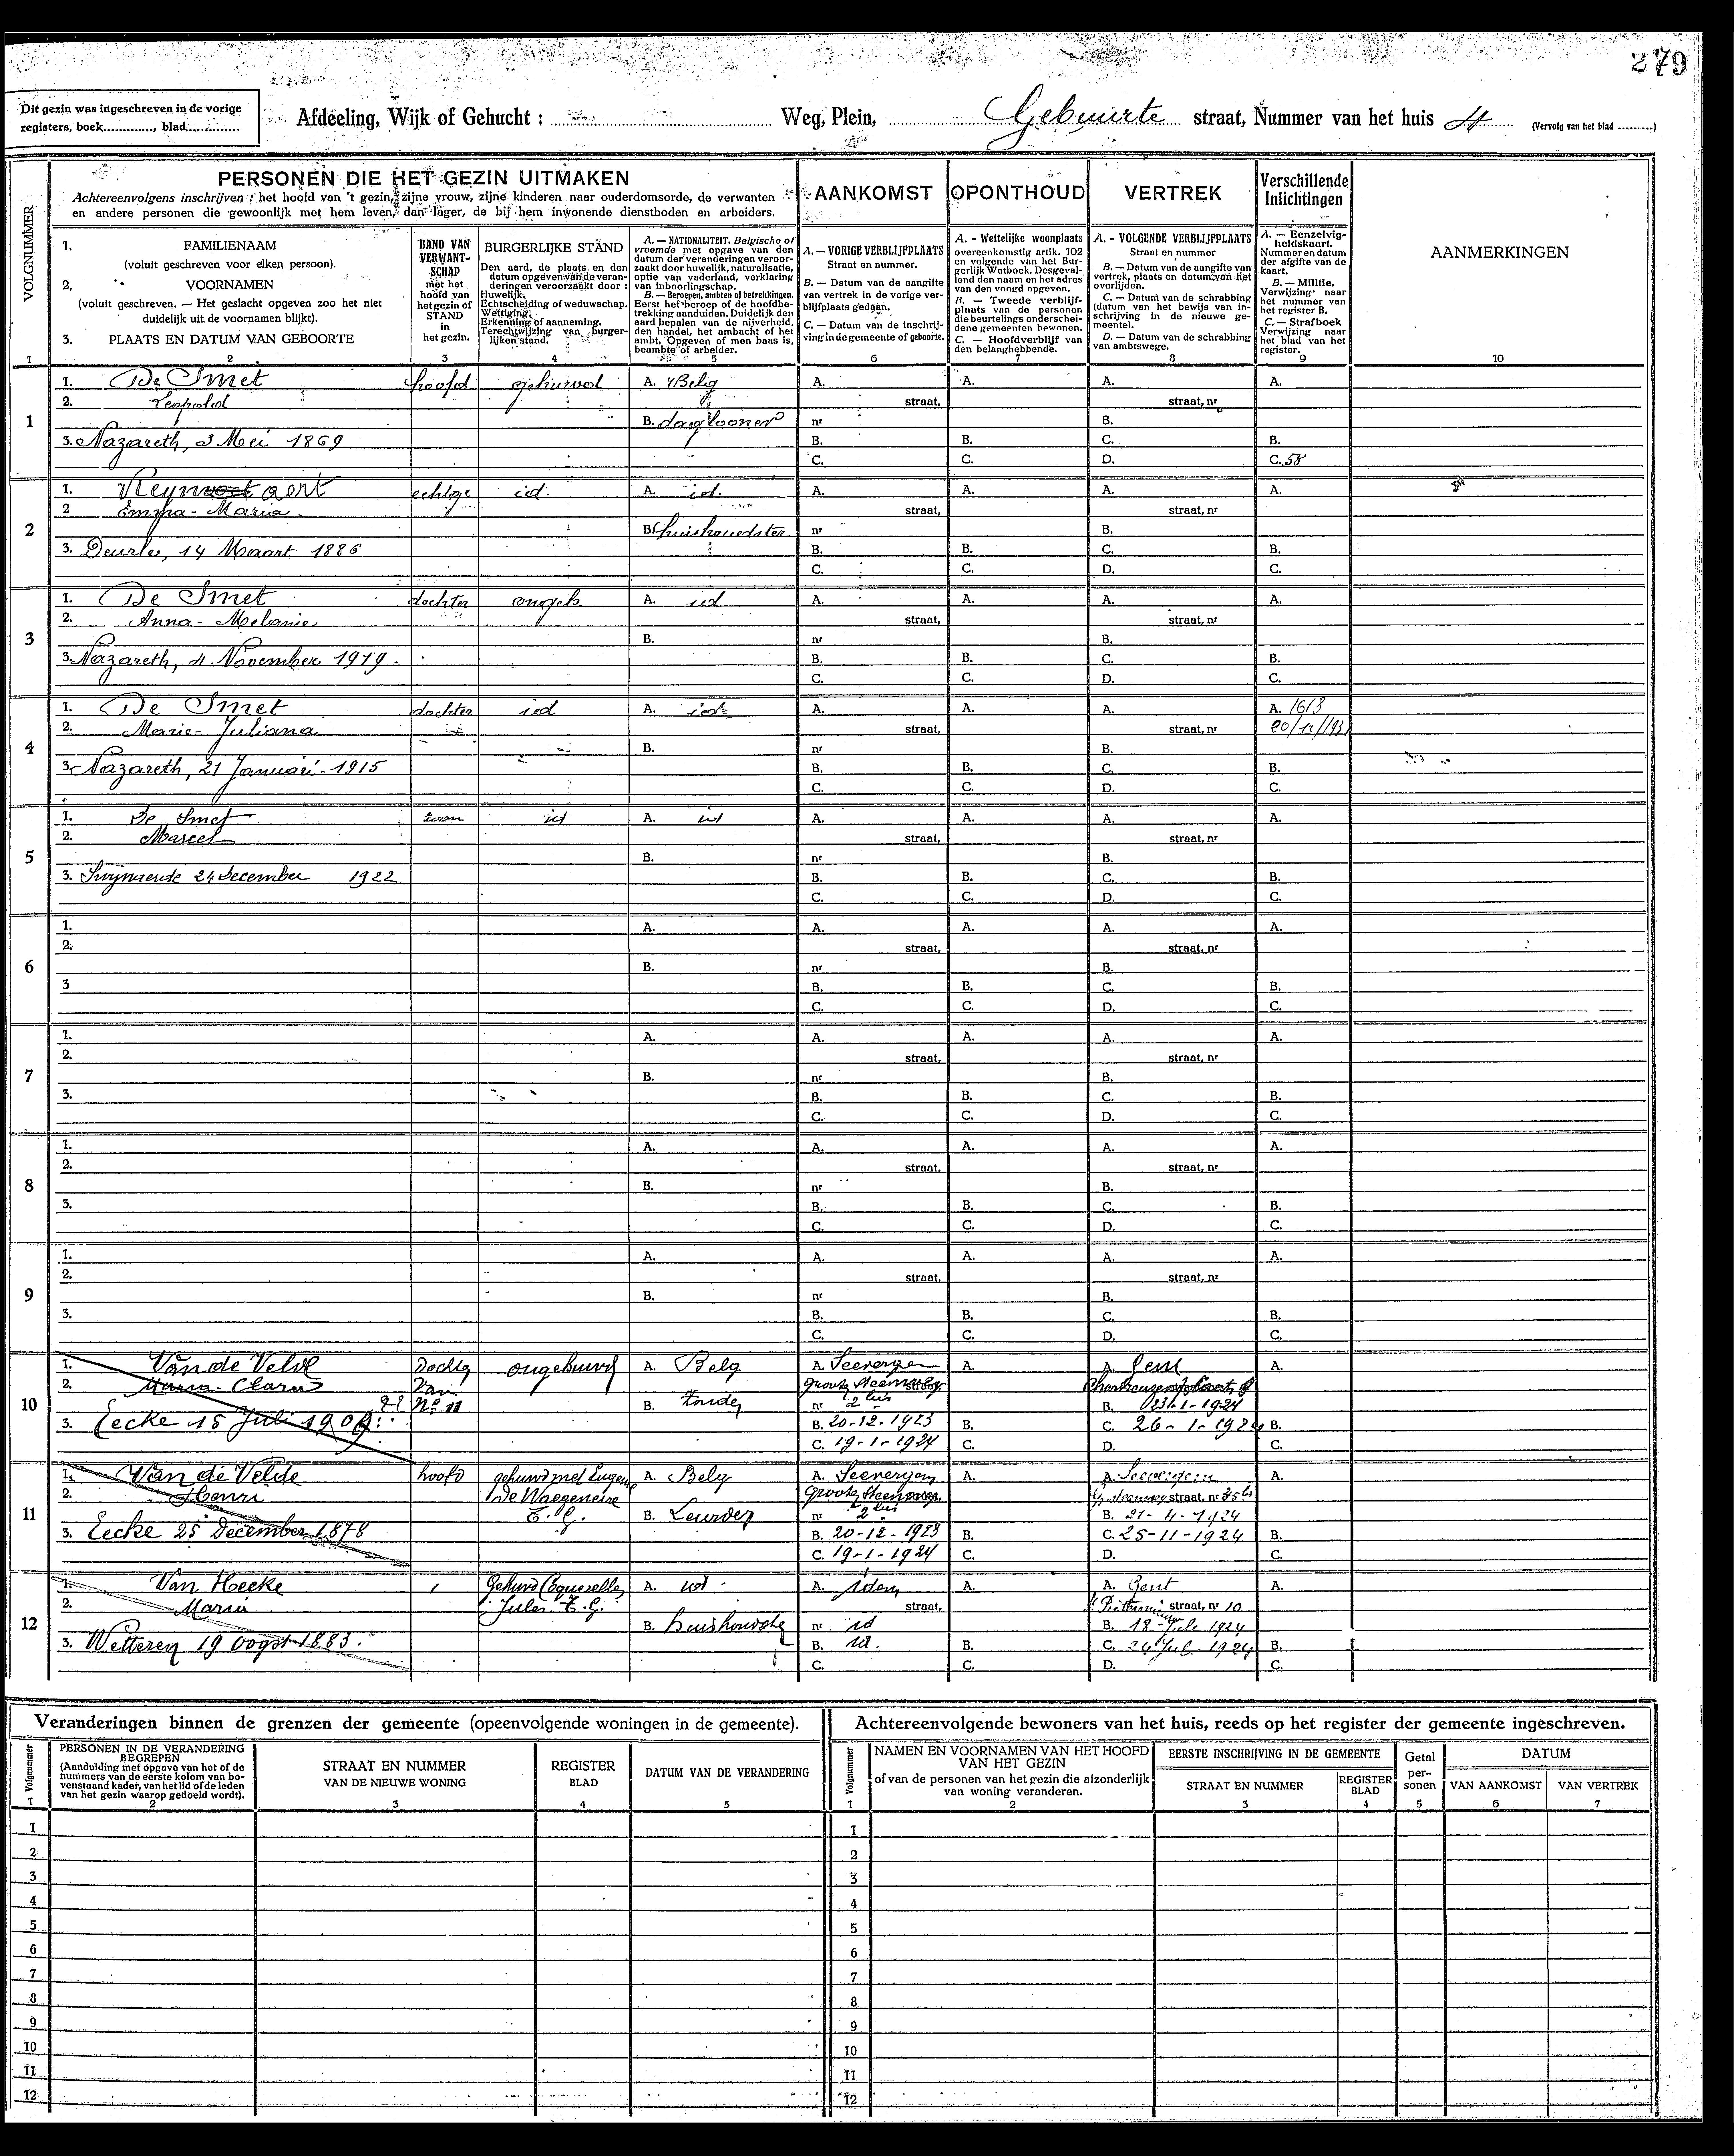 279
Dit gezin was ingeschreven in de vorige
registers, boek............., blad..............
Afdeeling, Wijk of Gehucht : Weg, Plein, Gebuurte straat, Nummer van het huis 4 (Vervolg van het blad .........)
VOLGNUMMER
PERSONEN DIE HET GEZIN UITMAKEN
Achtereenvolgens inschrijven : het hoofd van 't gezin, zijne vrouw, zijne kinderen naar ouderdomsorde, de verwanten
en andere personen die gewoonlijk met hem leven, dan lager, de bij hem inwonende dienstboden en arbeiders.
AANKOMST
OPONTHOUD
VERTREK
Verschillende
Inlichtingen
1. FAMILIENAAM
(voluit geschreven voor elken persoon).
2. VOORNAMEN
(voluit geschreven. — Het geslacht opgeven zoo het niet
duidelijk uit de voornamen blijkt).
3. PLAATS EN DATUM VAN GEBOORTE
BAND VAN
VERWANT-
SCHAP
met het
hoofd van
het gezin of
STAND
in
het gezin.
BURGERLIJKE STAND
Den aard, de plaats en den
datum opgeven van de veran-
deringen veroorzaakt door :
Huwelijk.
Echtscheiding of weduwschap.
Wettiging.
Erkenning of aanneming.
Terechtwijzing van burger-
lijken stand.
A. — NATIONALITEIT. Belgische of
vreemde met opgave van den
datum der veranderingen veroor-
zaakt door huwelijk, naturalisatie,
optie van vaderland, verklaring
van inboorlingschap.
B. — Beroepen, ambten of betrekkingen.
Eerst het beroep of de hoofdbe-
trekking aanduiden. Duidelijk den
aard bepalen van de nijverheid,
den handel, het ambacht of het
ambt. Opgeven of men baas is,
beambte of arbeider.
A. — VORIGE VERBLIJFPLAATS
Straat en nummer.
B. — Datum van de aangifte
van vertrek in de vorige ver-
blijfplaats gedaan.
C. — Datum van de inschrij-
ving in de gemeente of geboorte.
A. - Wettelijke woonplaats
overeenkomstig artik. 102
en volgende van het Bur-
gerlijk Wetboek. Desgeval-
lend den naam en het adres
van den voogd opgeven.
B. — Tweede verblijf-
plaats van de personen
die beurtelings onderschei-
dene gemeenten bewonen.
C. — Hoofdverblijf van
den belanghebbende.
A. - VOLGENDE VERBLIJFPLAATS
Straat en nummer
B. — Datum van de aangifte van
vertrek, plaats en datum van het
overlijden.
C. — Datum van de schrabbing
(datum van het bewijs van in-
schrijving in de nieuwe ge-
meente).
D. — Datum van de schrabbing
van ambtswege.
A. — Eenzelvig-
heidskaart.
Nummer en datum
der afgifte van de
kaart.
B. — Militie.
Verwijzing naar
het nummer van
het register B.
C. — Strafboek
Verwijzing naar
het blad van het
register.
AANMERKINGEN
1 2 3 4 5 6 7 8 9 10
1. De Smet hoofd gehuwd A. Belg A. A. A. A.
2. Leopold straat, straat, nr
1 B. daglooner nr B.
3. Nazareth, 3 Mei 1869 B. B. C. B.
C. C. D. C. 58
1. aert echtge id. A. id. A. A. A. A.
2 Emma-Maria straat, straat, nr
2 B. huishoudster nr B.
3. Deurle, 14 Maart 1886 B. B. C. B.
C. C. D. C.
1. De Smet dochter ongeh A. id A. A. A. A.
2. Anna-Melanie straat, straat, nr
3 B. nr B.
3. Nazareth, 4 November 1919. B. B. C. B.
C. C. D. C.
1. De Smet dochter id A. id A. A. A. A. 1618
2. Marie-Juliana straat, straat, nr 20/12/1931
4 B. nr B.
3. Nazareth, 21 Januari 1915 B. B. C. B.
C. C. D. C.
1. De Smet zoon id A. id A. A. A. A.
2. Marcel straat, straat, nr
5 B. nr B.
3. Swijnaerde 24 December 1922 B. B. C. B.
C. C. D. C.
1. A. A. A. A. A.
2. straat, straat, nr
6 B. nr B.
3 B. B. C. B.
C. C. D. C.
1. A. A. A. A. A.
2. straat, straat, nr
7 B. nr B.
3. B. B. C. B.
C. C. D. C.
1. A. A. A. A. A.
2. straat, straat, nr
8 B. nr B.
3. B. B. C. B.
C. C. D. C.
1. A. A. A. A. A.
2. straat, straat, nr
9 B. nr B.
3. B. B. C. B.
C. C. D. C.
1. Van de Velde Dochter ongehuwd A. Belg A. Seevergem A. A. Gent A.
2. Maria-Clara van Groote Steenweg
10 No 11 B. zonder nr 2 bis B. 23-1-1924
3. Eecke 15 Juli B. 20-12-1923 B. C. 26-1-1924 B.
C. 19-1-1924 C. D. C.
1. Van de Velde hoofd gehuwd met Eugenie A. Belg A. Seevergem A. A. Seevergem A.
2. Henri De Waegeneire Groote Steenweg straat, nr 35 bis
11 E.G. B. Leurder nr 2 bis B. 21-11-1924
3. Eecke 25 December 1878 B. 20-12-1923 B. C. 25-11-1924 B.
C. 19-1-1924 C. D. C.
1. Van Hecke Gehuwd Coquerelle A. id. A. idem A. A. Gent A.
2. Maria Jules E.G. straat, straat, nr 10
12 B. huishoudster nr id B. 18 Juli 1924
3. Wetteren 19 Oogst 1883. B. id. B. C. 24 Jul. 1924 B.
C. C. D. C.
Veranderingen binnen de grenzen der gemeente (opeenvolgende woningen in de gemeente).
Volgnummer
PERSONEN IN DE VERANDERING
BEGREPEN
(Aanduiding met opgave van het of de
nummers van de eerste kolom van bo-
venstaand kader, van het lid of de leden
van het gezin waarop gedoeld wordt).
STRAAT EN NUMMER
VAN DE NIEUWE WONING
REGISTER
BLAD
DATUM VAN DE VERANDERING
1 2 3 4 5
1
2
3
4
5
6
7
8
9
10
11
12
Achtereenvolgende bewoners van het huis, reeds op het register der gemeente ingeschreven.
Volgnummer
NAMEN EN VOORNAMEN VAN HET HOOFD
VAN HET GEZIN
of van de personen van het gezin die afzonderlijk
van woning veranderen.
EERSTE INSCHRIJVING IN DE GEMEENTE
STRAAT EN NUMMER
REGISTER
BLAD
Getal
per-
sonen
DATUM
VAN AANKOMST
VAN VERTREK
1 2 3 4 5 6 7
1
2
3
4
5
6
7
8
9
10
11
12